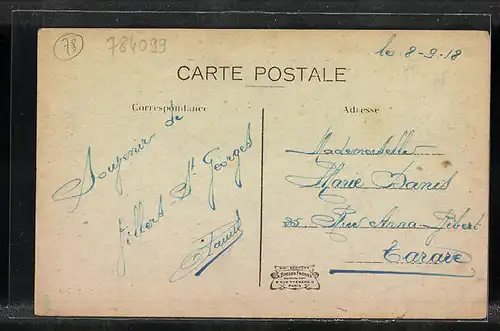 78
784099
le 8-9-18
CARTE POSTALE
Correspondance
Adresse
Souvenir de
St Georges
Mademoiselle
Marie Danis
35 Rue Anna
Tarare
PARIS